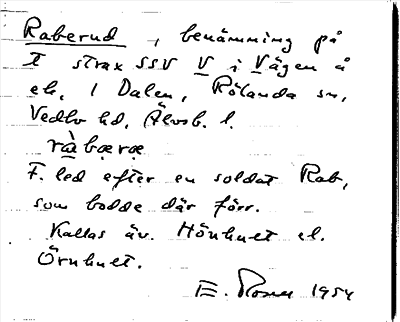 Raberud, benämning på
T strax SSV V i Vägen å
ek. 1 Dalen, Rölanda sn,
Vedbo hd, Älvsb. l.
ràbæræ
F. led efter en soldat Rab,
som bodde där förr.
Kallas äv. Hönhult el.
Örnhult.
E. 1954